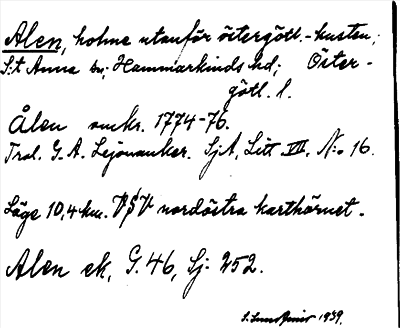 Alen, holme utanför östergötl.-kusten;
S:t Anna sn; Hammarkinds hd; Öster-
götl. l.
Ålen omkr. 1774-76.
Trol. G. A. Lejonanker. SjA, Litt VII, N:o 16.
Läge 10,4 km. VSV nordöstra karthörnet.
Alen ek, G. 46, Sj: 252.
1939.